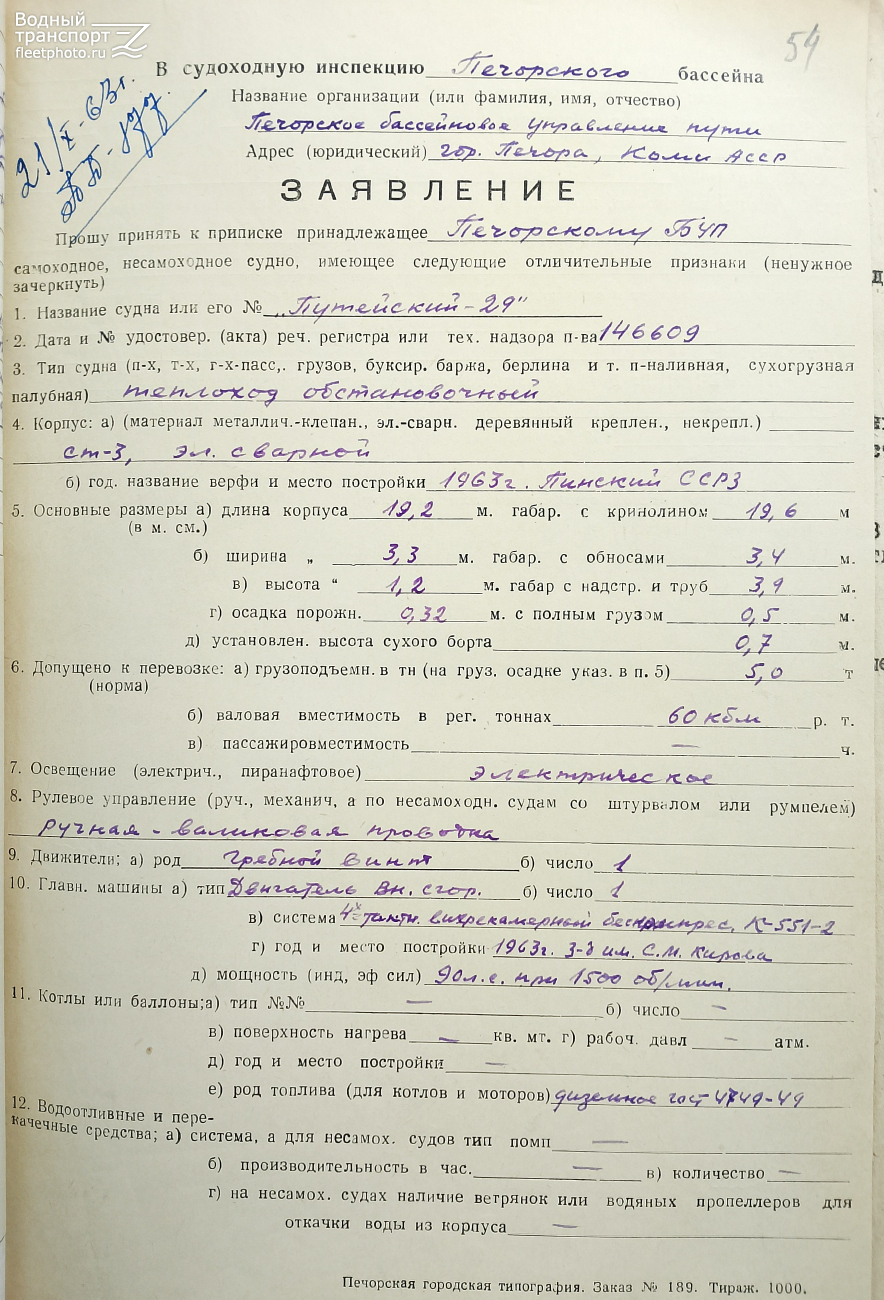 Водный
транспорт
fleetphoto.ru
54
21/X-63г.
В судоходную инспекцию Печорского бассейна
Название организации (или фамилия, имя, отчество)
Печорское бассейновое управление пути
Адрес (юридический) гор. Печора, Коми АССР
ЗАЯВЛЕНИЕ
Прошу принять к приписке принадлежащее Печорскому БУП
самоходное, несамоходное судно, имеющее следующие отличительные признаки (ненужное
зачеркнуть)
1. Название судна или его № „Путейский-29"
2. Дата и № удостовер. (акта) реч. регистра или тех. надзора п-ва 146609
3. Тип судна (п-х, т-х, г-х-пасс,. грузов, буксир. баржа, берлина и т. п-наливная, сухогрузная
палубная) теплоход обстановочный
4. Корпус: а) (материал металлич.-клепан., эл.-сварн. деревянный креплен., некрепл.)
ст-3, эл. сварной
б) год. название верфи и место постройки 1963г. Пинский ССРЗ
5. Основные размеры а) длина корпуса 19,2 м. габар. с кринолином 19,6 м
(в м. см.)
б) ширина „ 3,3 м. габар. с обносами 3,4 м.
в) высота “ 1,2 м. габар с надстр. и труб 3,9 м.
г) осадка порожн. 0,32 м. с полным грузом 0,5 м.
д) установлен. высота сухого борта 0,7 м.
6. Допущено к перевозке: а) грузоподъемн. в тн (на груз. осадке указ. в п. 5) 5,0 т
(норма)
б) валовая вместимость в рег. тоннах 60 кбм р. т.
в) пассажировместимость — ч.
7. Освещение (электрич., пиранафтовое) электрическое
8. Рулевое управление (руч., механич, а по несамоходн. судам со штурвалом или румпелем)
Ручная - валиковая проводка
9. Движители; а) род гребной винт б) число 1
10. Главн. машины а) тип Двигатель вн. сгор. б) число 1
в) система 4х такти. вихрекамерный бескомпрес. К-551-2
г) год и место постройки 1963г. з-д им. С.М. Кирова
д) мощность (инд, эф сил) 90 л.с. при 1500 об/мин.
11. Котлы или баллоны;а) тип №№ — б) число —
в) поверхность нагрева — кв. мт. г) рабоч. давл — атм.
д) год и место постройки —
е) род топлива (для котлов и моторов) дизельное гост 4749-49
12. Водоотливные и пере-
качечные средства; а) система, а для несамох. судов тип помп —
б) производительность в час. — в) количество —
г) на несамох. судах наличие ветрянок или водяных пропеллеров для
откачки воды из корпуса —
Печорская городская типография. Заказ № 189. Тираж. 1000.